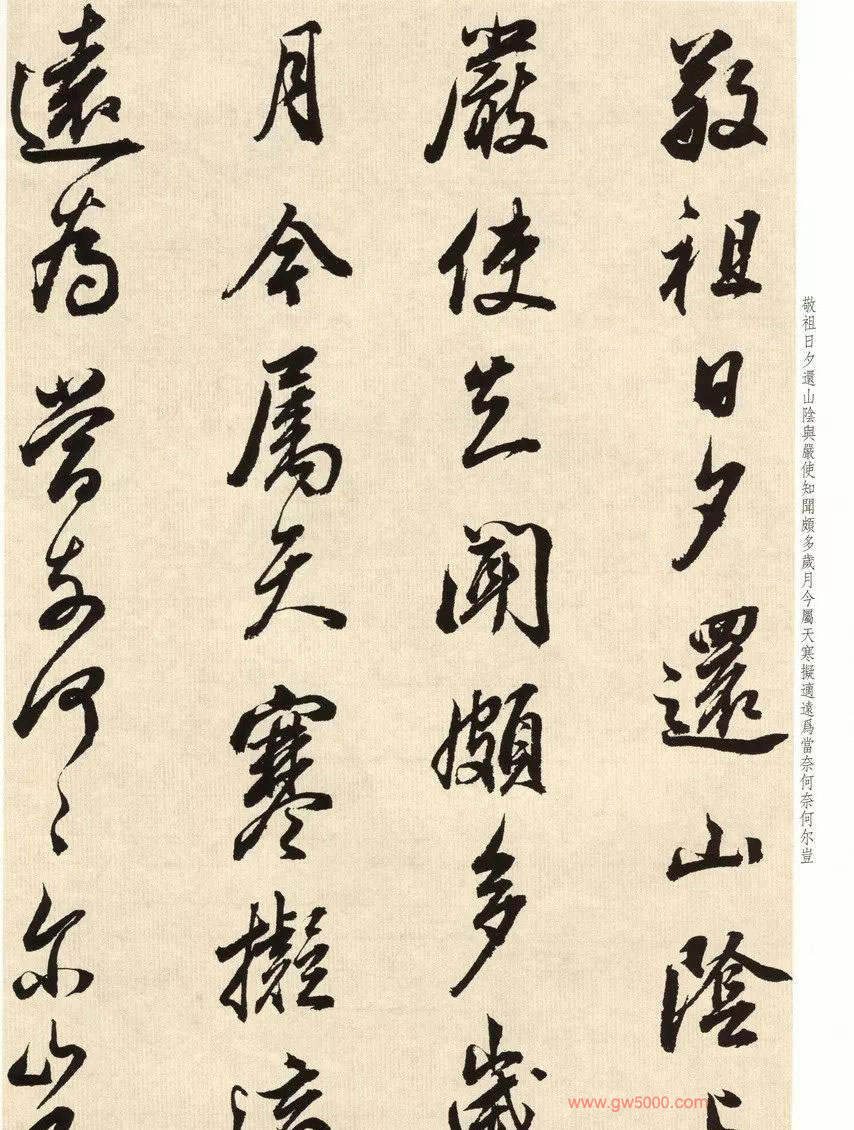 敬祖日夕還山陰與
嚴使知聞頗多歲
月今屬天寒擬適
遠爲當奈何〻尔豈
敬祖日夕還山陰與嚴使知聞頗多歲月今屬天寒擬適遠爲當奈何奈何尔豈
www.gw5000.com